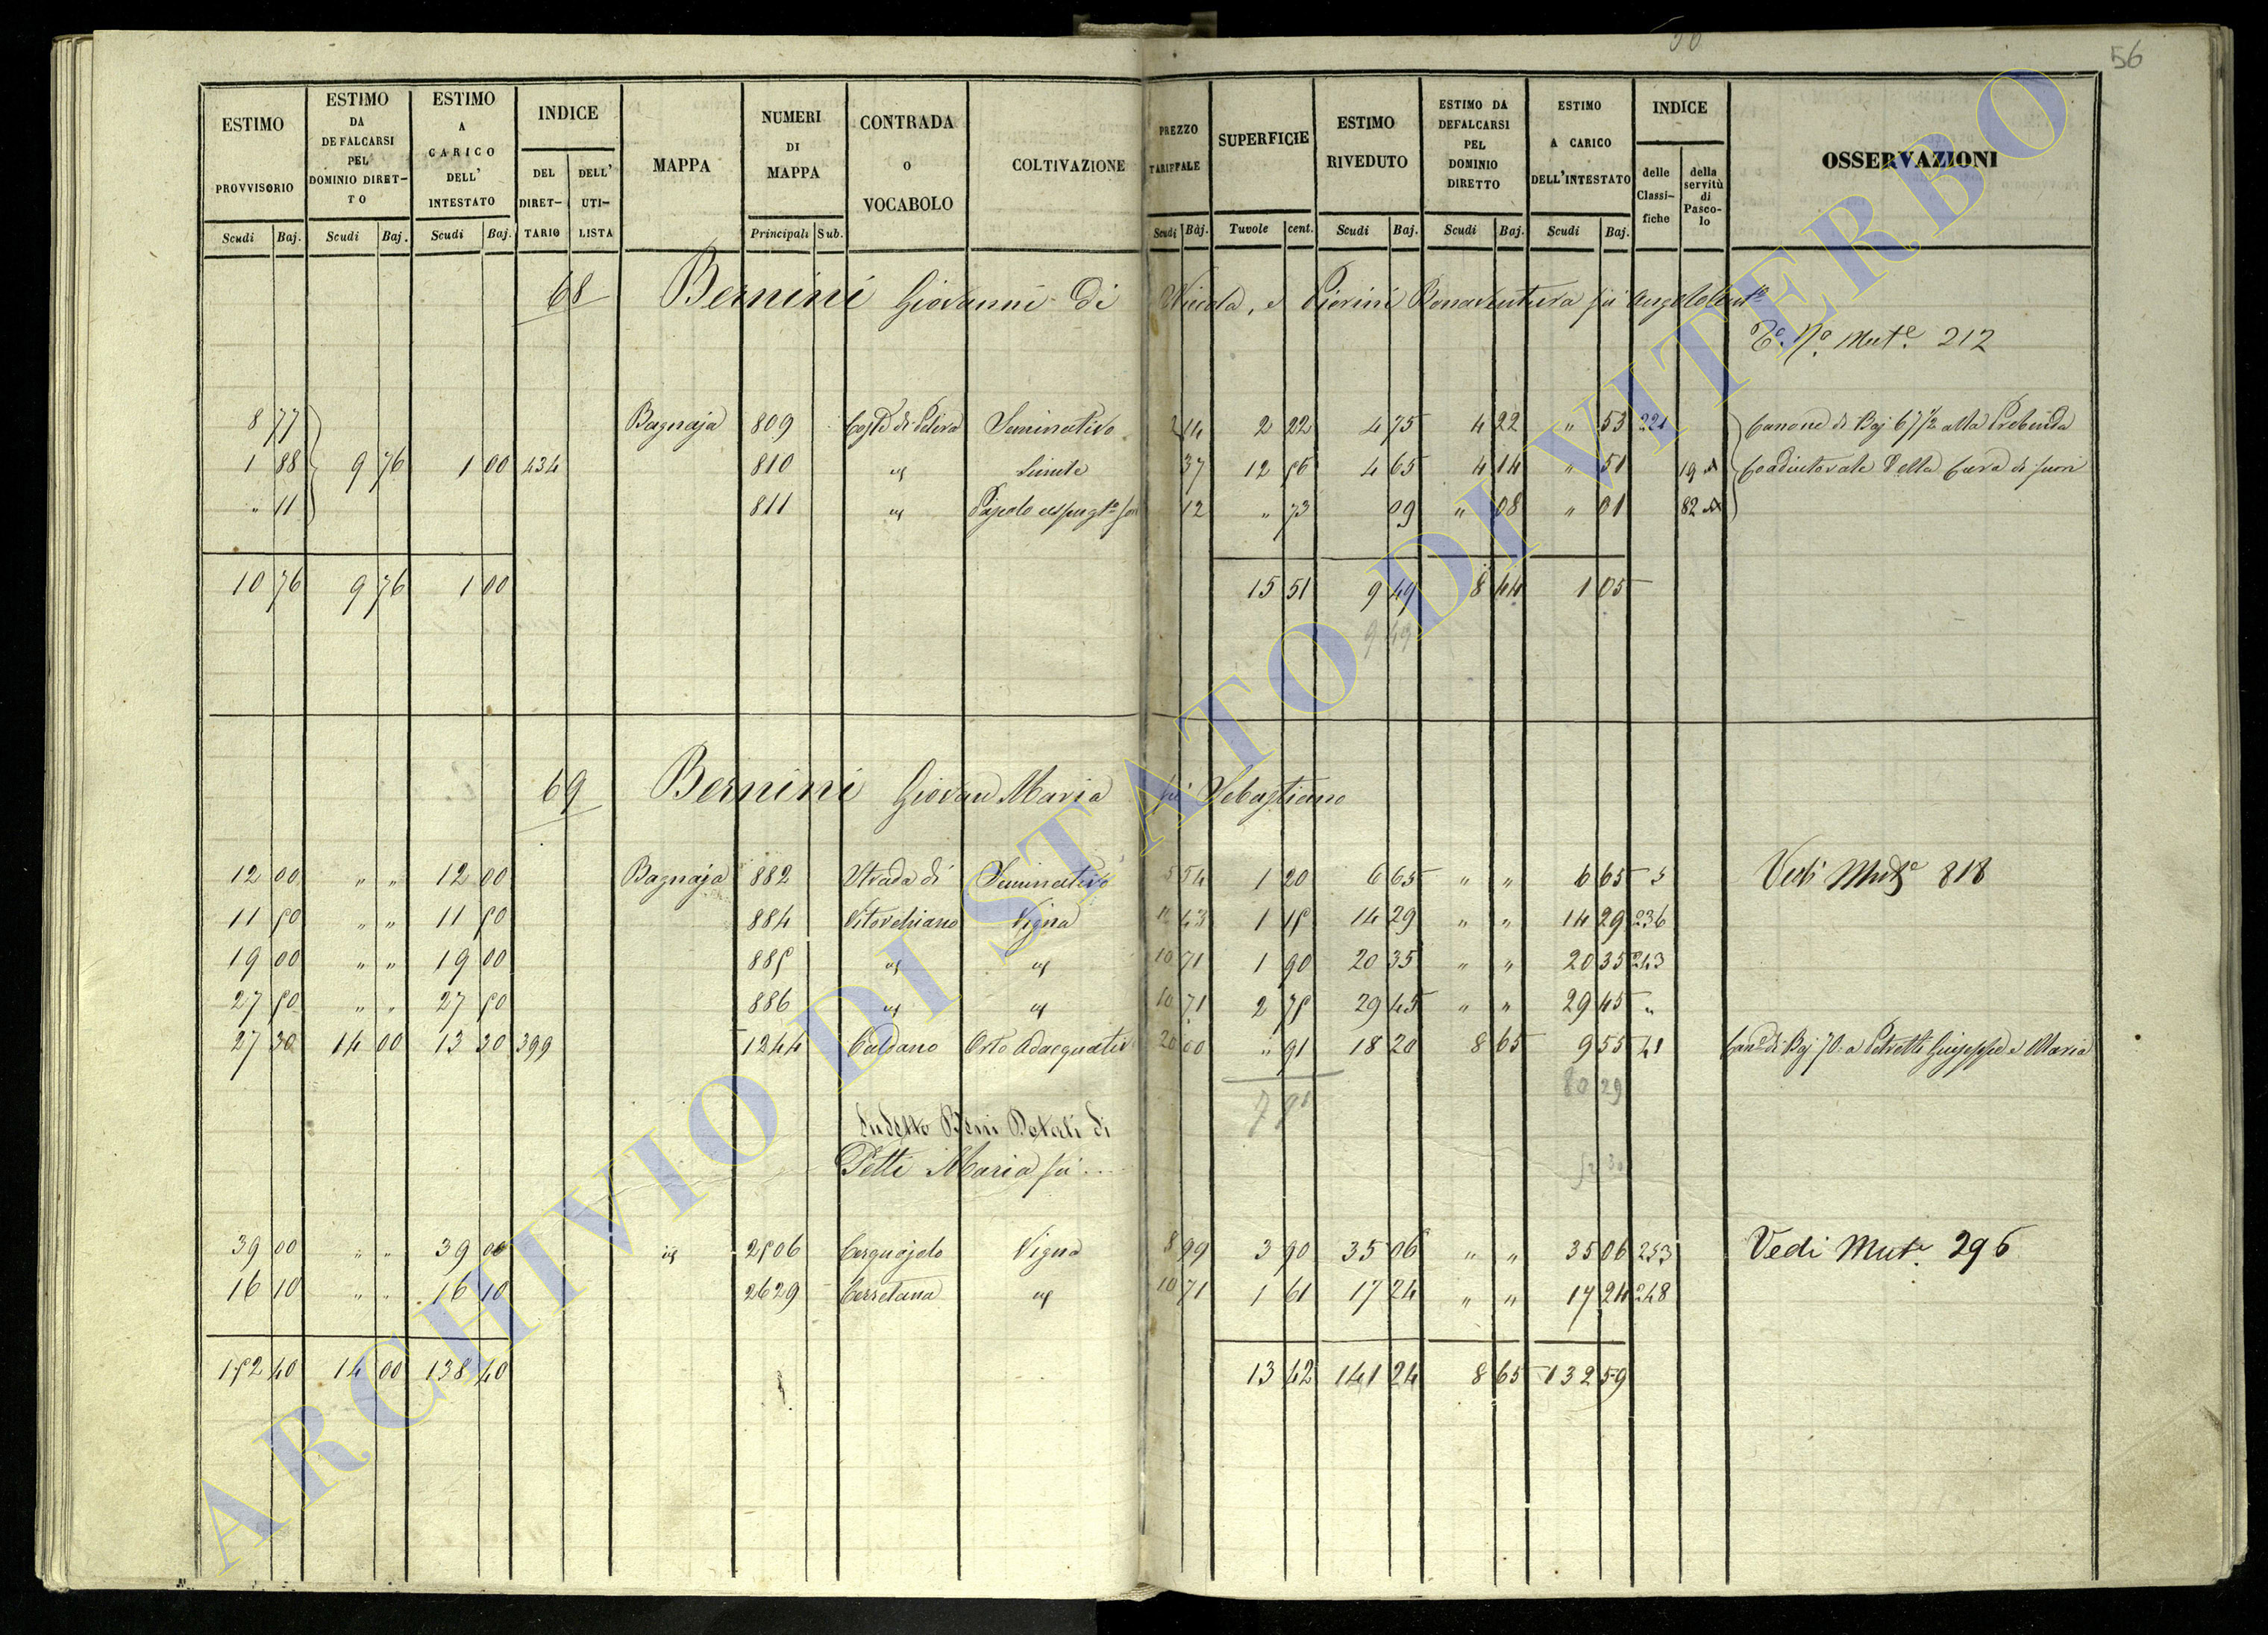 56
ESTIMO PROVVISORIO | ESTIMO DA DEFALCARSI PEL DOMINIO DIRET-TO | ESTIMO A CARICO DELL' INTESTATO | INDICE | MAPPA | NUMERI DI MAPPA | CONTRADA o VOCABOLO | COLTIVAZIONE | PREZZO TARIFFALE | SUPERFICIE | ESTIMO RIVEDUTO | ESTIMO DA DEFALCARSI PEL DOMINIO DIRETTO | ESTIMO A CARICO DELL'INTESTATO | INDICE | OSSERVAZIONI
DEL DIRET-TARIO | DELL' UTI-LISTA | delle Classi-fiche | della servitù di Pasco-lo
Scudi | Baj. | Scudi | Baj. | Scudi | Baj. | Principali | Sub. | Scudi | Baj. | Tavole | cent. | Scudi | Baj. | Scudi | Baj. | Scudi | Baj.
68 Bernini Giovanni di Nicola, e Pierini Bonaventura fu Angelo
Mut.e 212
8 77 | Bagnaja | 809 | Seminativo | 2 14 | 2 22 | 4 75 | 4 22 | " 53 | 221 | Canone di Baj 67½ alla Prebenda
1 88 | 9 76 | 1 00 | 434 | 810 | " | 37 | 12 56 | 4 65 | 4 14 | " 51 | 19 | Coadiutorale della Cura di fuori
" 11 | 811 | " | 12 | " 73 | 09 | " 08 | " 01 | 82
10 76 | 9 76 | 1 00 | 15 51 | 9 49 | 8 44 | 1 05
9 49
69 Bernini Giovan Maria fu Sebastiano
12 00 | " " | 12 00 | Bagnaja | 882 | Strada di | Seminativo | 5 54 | 1 20 | 6 65 | " " | 6 65 | 5 | Vedi Mut.e 818
11 50 | " " | 11 50 | 884 | Vitorchiano | Vigna | 12 43 | 1 15 | 14 29 | " " | 14 29 | 236
19 00 | " " | 19 00 | 885 | " | " | 10 71 | 1 90 | 20 35 | " " | 20 35 | 243
27 50 | " " | 27 50 | 886 | " | " | 10 71 | 2 75 | 29 45 | " " | 29 45 | "
27 30 | 14 00 | 13 30 | 399 | 1244 | Caldano | Orto Adacquativo | 20 00 | " 91 | 18 20 | 8 65 | 9 55 | 41 | Can.e di Baj 70 a Petretti Giuseppe e Maria
7 91 | 80 29
Sudetto Beni Dotali di
Petti Maria fu ...
52 30
39 00 | " " | 39 00 | 2506 | Cerquajolo | Vigna | 8 99 | 3 90 | 35 06 | " " | 35 06 | 253 | Vedi Mut.e 296
16 10 | " " | 16 10 | 2629 | Cerretana | " | 10 71 | 1 61 | 17 24 | " " | 17 24 | 248
152 40 | 14 00 | 138 40 | 13 42 | 141 24 | 8 65 | 132 59
ARCHIVIO DI STATO DI VITERBO